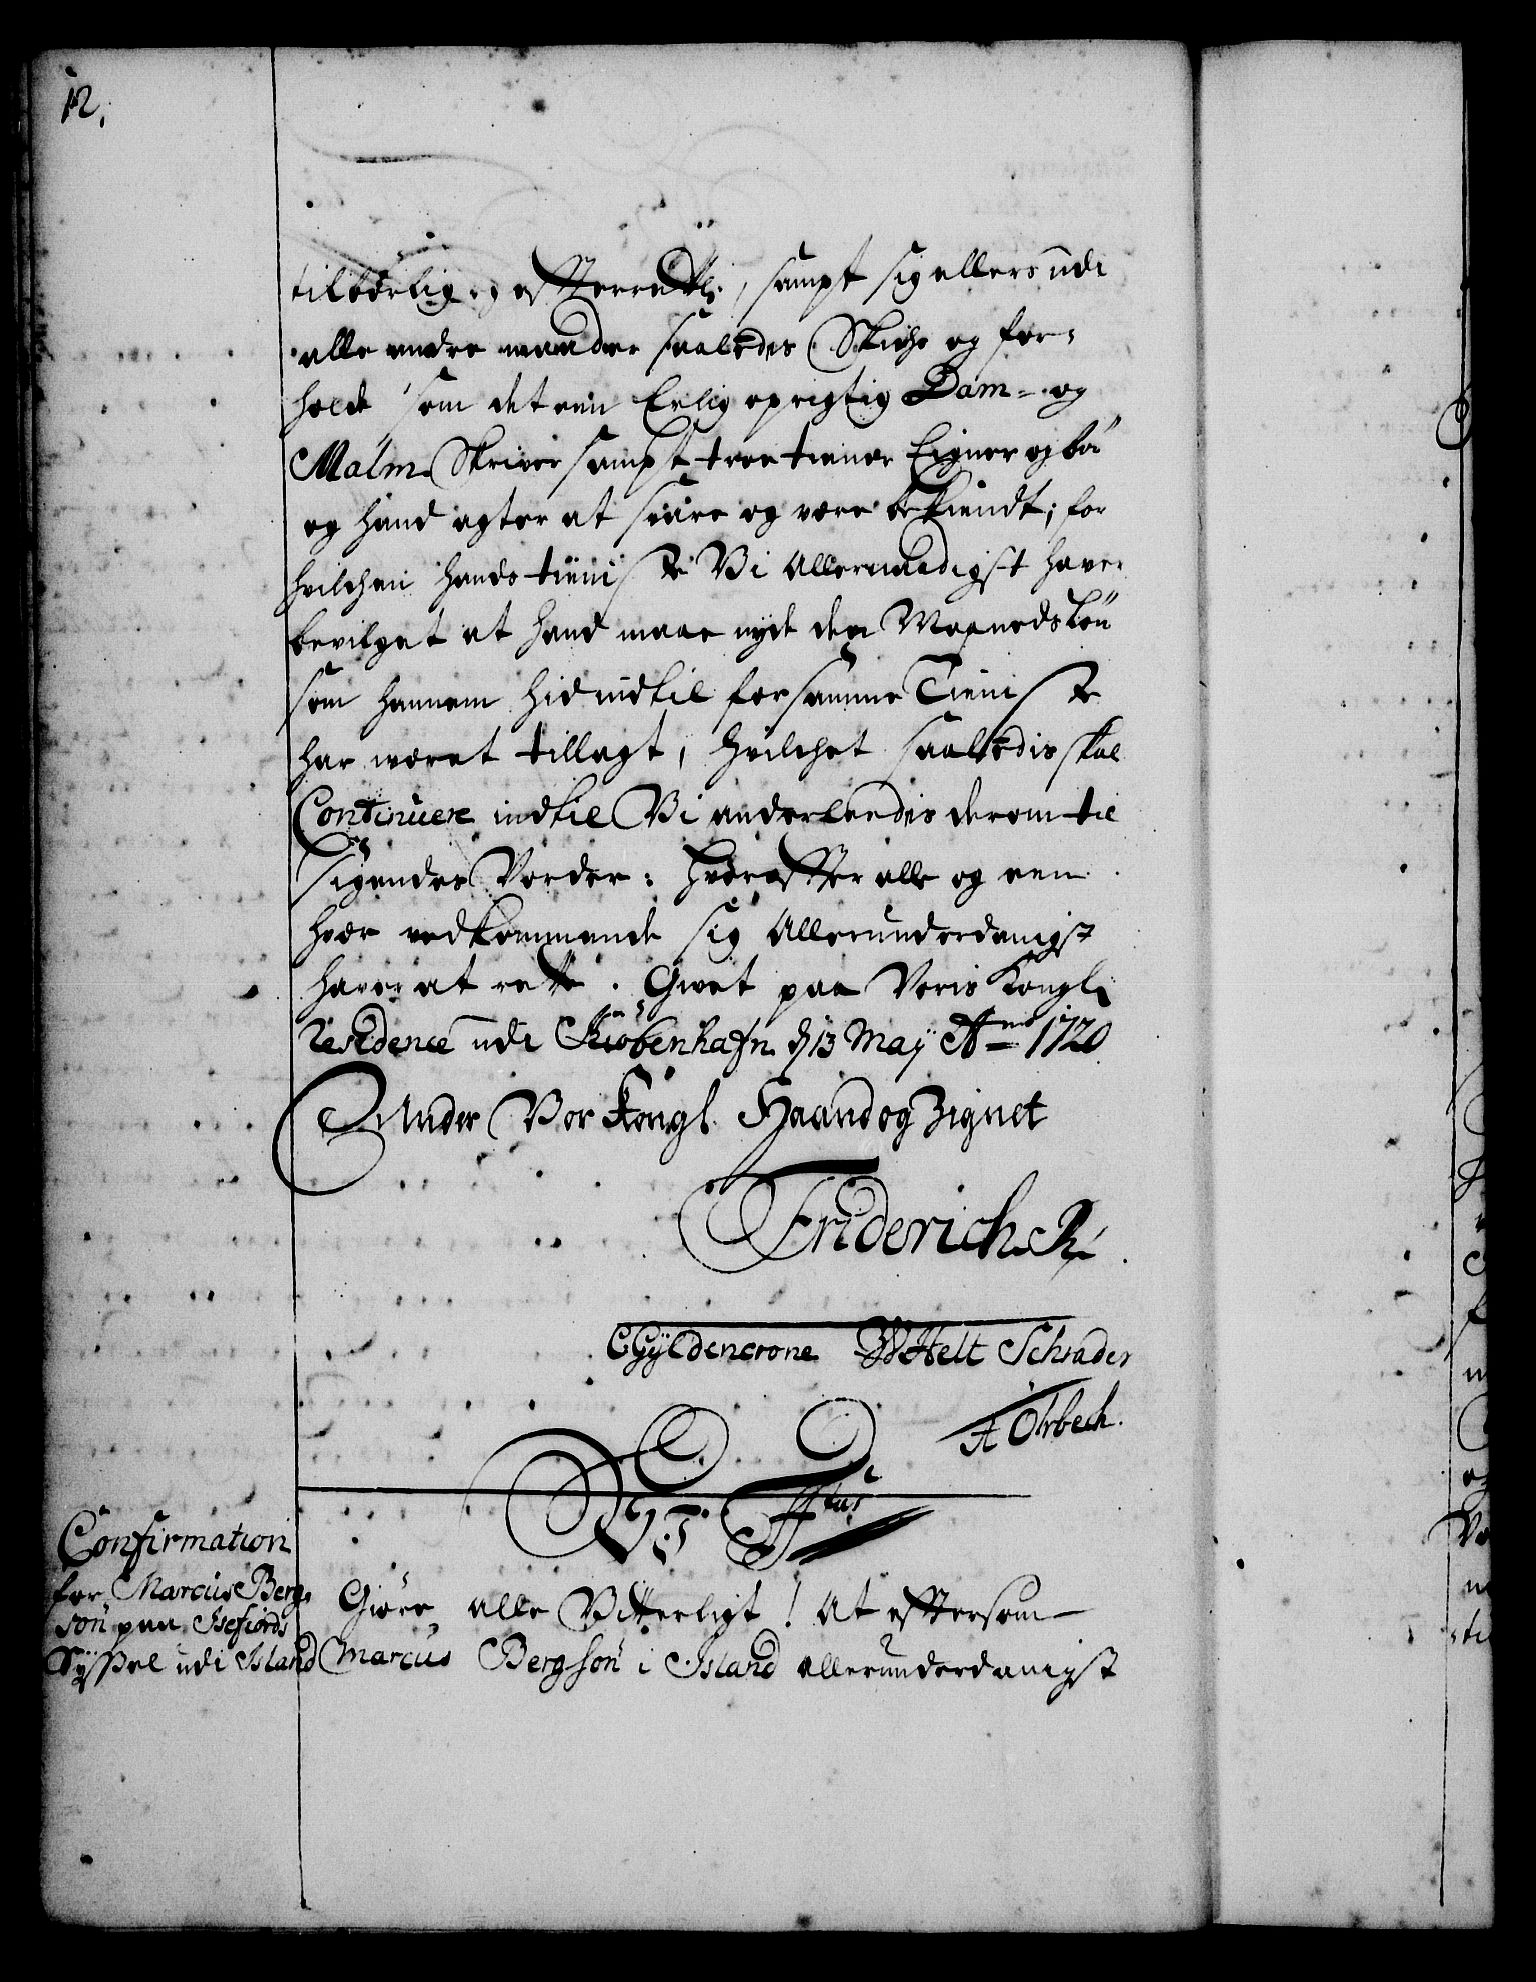 12.
tilbørlig og efterrettl:, sampt sig ellers udi
alle andre maader saaledis Skiche og for-
holde som det een Erlig oprigtig Dam- og
Malm Skriver sampt troe tienner Eigner og bør
og hand agter at svare og være bekiendt; for
hvilchen hands tieniste Vi Allernaadigst haver
bevilget at hand maae nyde den Maanedsløn
som hannem hid indtil for samme Tieniste
har været tillagt, hvilchet saaledis skal
Continuere indtil Vi anderleedis derom til
sigendes Vorder: hvorefter alle og een
hver vedkommende sig Allerunderdanigst
haver at rette. Givet paa Voris Kongl.
residence udi Kiøbenhafn d 13 Maij Ao 1720
Under Vor Kongl. Haand og Zignet
Friderich R.
CGyldencrone WHelt Schrader
A Ohrbech.
V: F: 4tus
Confirmation
for Marcus Berg-
søn paa Isefiords
Syssel udi Island
Giøre alle Vitterligt! At eftersom
Marcus Bergsøn i Island allerunderdanigst